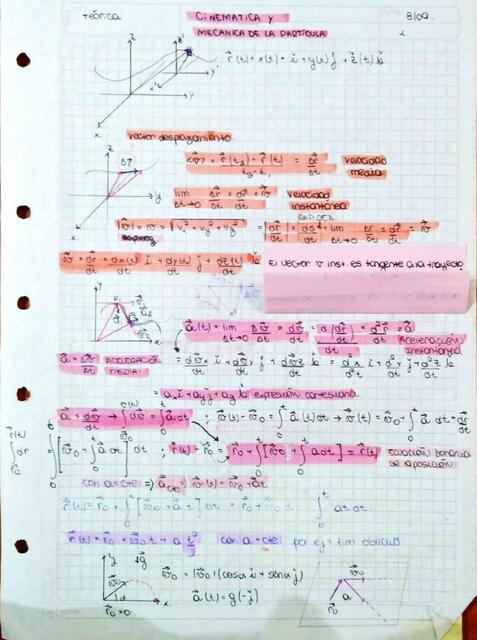 Teórica CINEMATICA Y 8/09
MECANICA DE LA PARTICULA
r⃗(t) = x(t) ĭ + y(t) j̆ + z(t) k̆
vector desplazamiento
<v⃗> = r⃗(t₂) - r⃗(t₁) / t₂ - t₁ = Δr⃗/Δt velocidad media
lim Δt→0 Δr⃗/Δt = dr⃗/dt = v⃗ velocidad instantánea
RAPIDEZ
|v⃗| = v = √(vx² + vy² + vz²) = |dr⃗/dt| = ds/dt = lim Δt→0 Δr/Δt = dr⃗/dt = v⃗
v⃗ = dr⃗/dt = dx(t)/dt ĭ + dy(t)/dt j̆ + dz(t)/dt k̆
El vector v inst. es tangente a la trayector.
a⃗(t) = lim Δt→0 Δv⃗/Δt = dv⃗/dt = d/dt (dr⃗/dt) = d²r⃗/dt² = a⃗ Aceleración instantánea
a⃗ = Δv⃗/Δt ACELERACIÓN MEDIA = dvx/dt ĭ + dvy/dt j̆ + dvz/dt k̆ = d²x/dt² ĭ + d²y/dt² j̆ + d²z/dt² k̆
= ax ĭ + ay j̆ + az k̆ expresión cartesiana
a⃗ = dv⃗/dt → ∫dv⃗ = ∫a⃗ dt ; v⃗(t) - v⃗₀ = ∫₀ᵗ a⃗(t) dt → v⃗(t) = v⃗₀ + ∫₀ᵗ a⃗ dt = dr⃗/dt
∫dr⃗ = ∫₀ᵗ [v⃗₀ + ∫₀ᵗ a⃗ dt] dt ; r⃗(t) - r⃗₀ = r⃗₀ + ∫₀ᵗ [v⃗₀ + ∫₀ᵗ a dt] = r⃗(t) Ecuación horaria de la posición
con a = cte ⇒ a⃗cte ⇒ v⃗(t) = v⃗₀ + a⃗t
r⃗(t) = r⃗₀ + ∫₀ᵗ [v⃗₀ + a⃗t] dt = r⃗₀ + v⃗₀t + ∫₀ᵗ at dt
r⃗(t) = r⃗₀ + v⃗₀t + a t²/2 con a = cte por ej = tiro oblicuo
v⃗₀ = |v⃗₀| (cosα ĭ + senα j̆)
a⃗(t) = g(-j̆)
r⃗₀ = 0